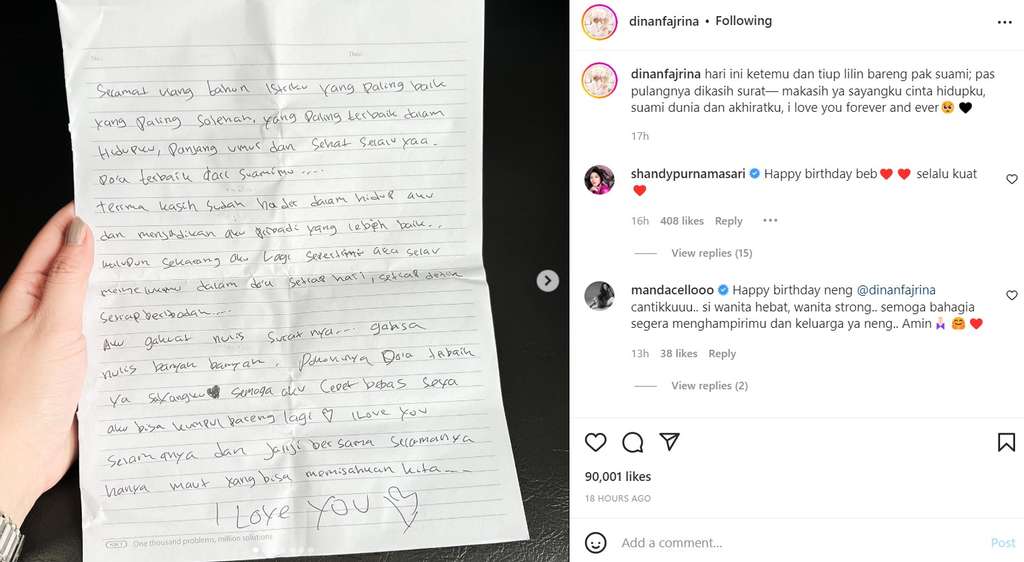 No.
Date:
Selamat ulang tahun Istriku yang paling baik
yang paling solehah, yang paling terbaik dalam
Hidupku, panjang umur dan sehat selalu yaa.
Do'a terbaik dari suamimu ....
terima kasih sudah hadir dalam hidup aku
dan menjadikan aku pribadi yang lebih baik..
walupun sekarang aku lagi aku selalu
memelukmu dalam do'a setiap hari, setiap detik
setiap beribadah....
Aku gakuat nulis suratnya... gabisa
nulis banyak banyak. Pokoknya Doa terbaik
ya sayangku semoga aku cepet bebas saya
aku bisa kumpul bareng lagi ♡ I Love you
selamanya dan janji bersama selamanya
hanya maut yang bisa memisahkan kita....
I Love You
One thousand problems, million solutions
dinanfajrina • Following
dinanfajrina hari ini ketemu dan tiup lilin bareng pak suami; pas
pulangnya dikasih surat— makasih ya sayangku cinta hidupku,
suami dunia dan akhiratku, i love you forever and ever🥺 🖤
17h
shandypurnamasari Happy birthday beb❤️ ❤️ selalu kuat
❤️
16h 408 likes Reply •••
View replies (15)
mandacellooo Happy birthday neng @dinanfajrina
cantikkuuu.. si wanita hebat, wanita strong.. semoga bahagia
segera menghampirimu dan keluarga ya neng.. Amin🤗 ❤️
13h 38 likes Reply
View replies (2)
90,001 likes
18 HOURS AGO
Add a comment...
Post